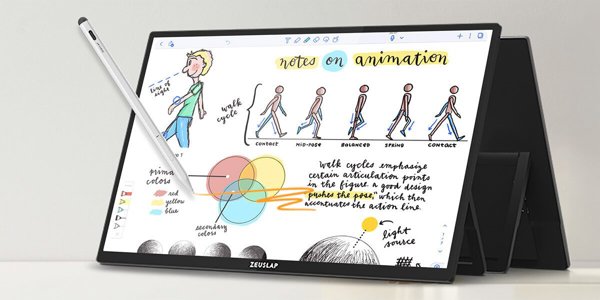 notes on animation
line of
sight
walk
cycle
CONTACT
MID-POSE
BALANCED
SPRING
CONTACT
primary
colors
red
yellow
blue
secondary
colors
walk cycles emphasize
certain articulation points
in the figure. a good design
"pushes the pose," which then
accentuates the action line.
light
source
ZEUSLAP